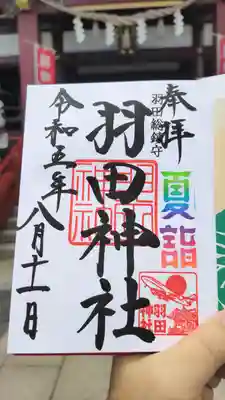 奉拝
夏詣
羽田総鎮守
羽田神社
令和五年
八月十一日
羽田
神社